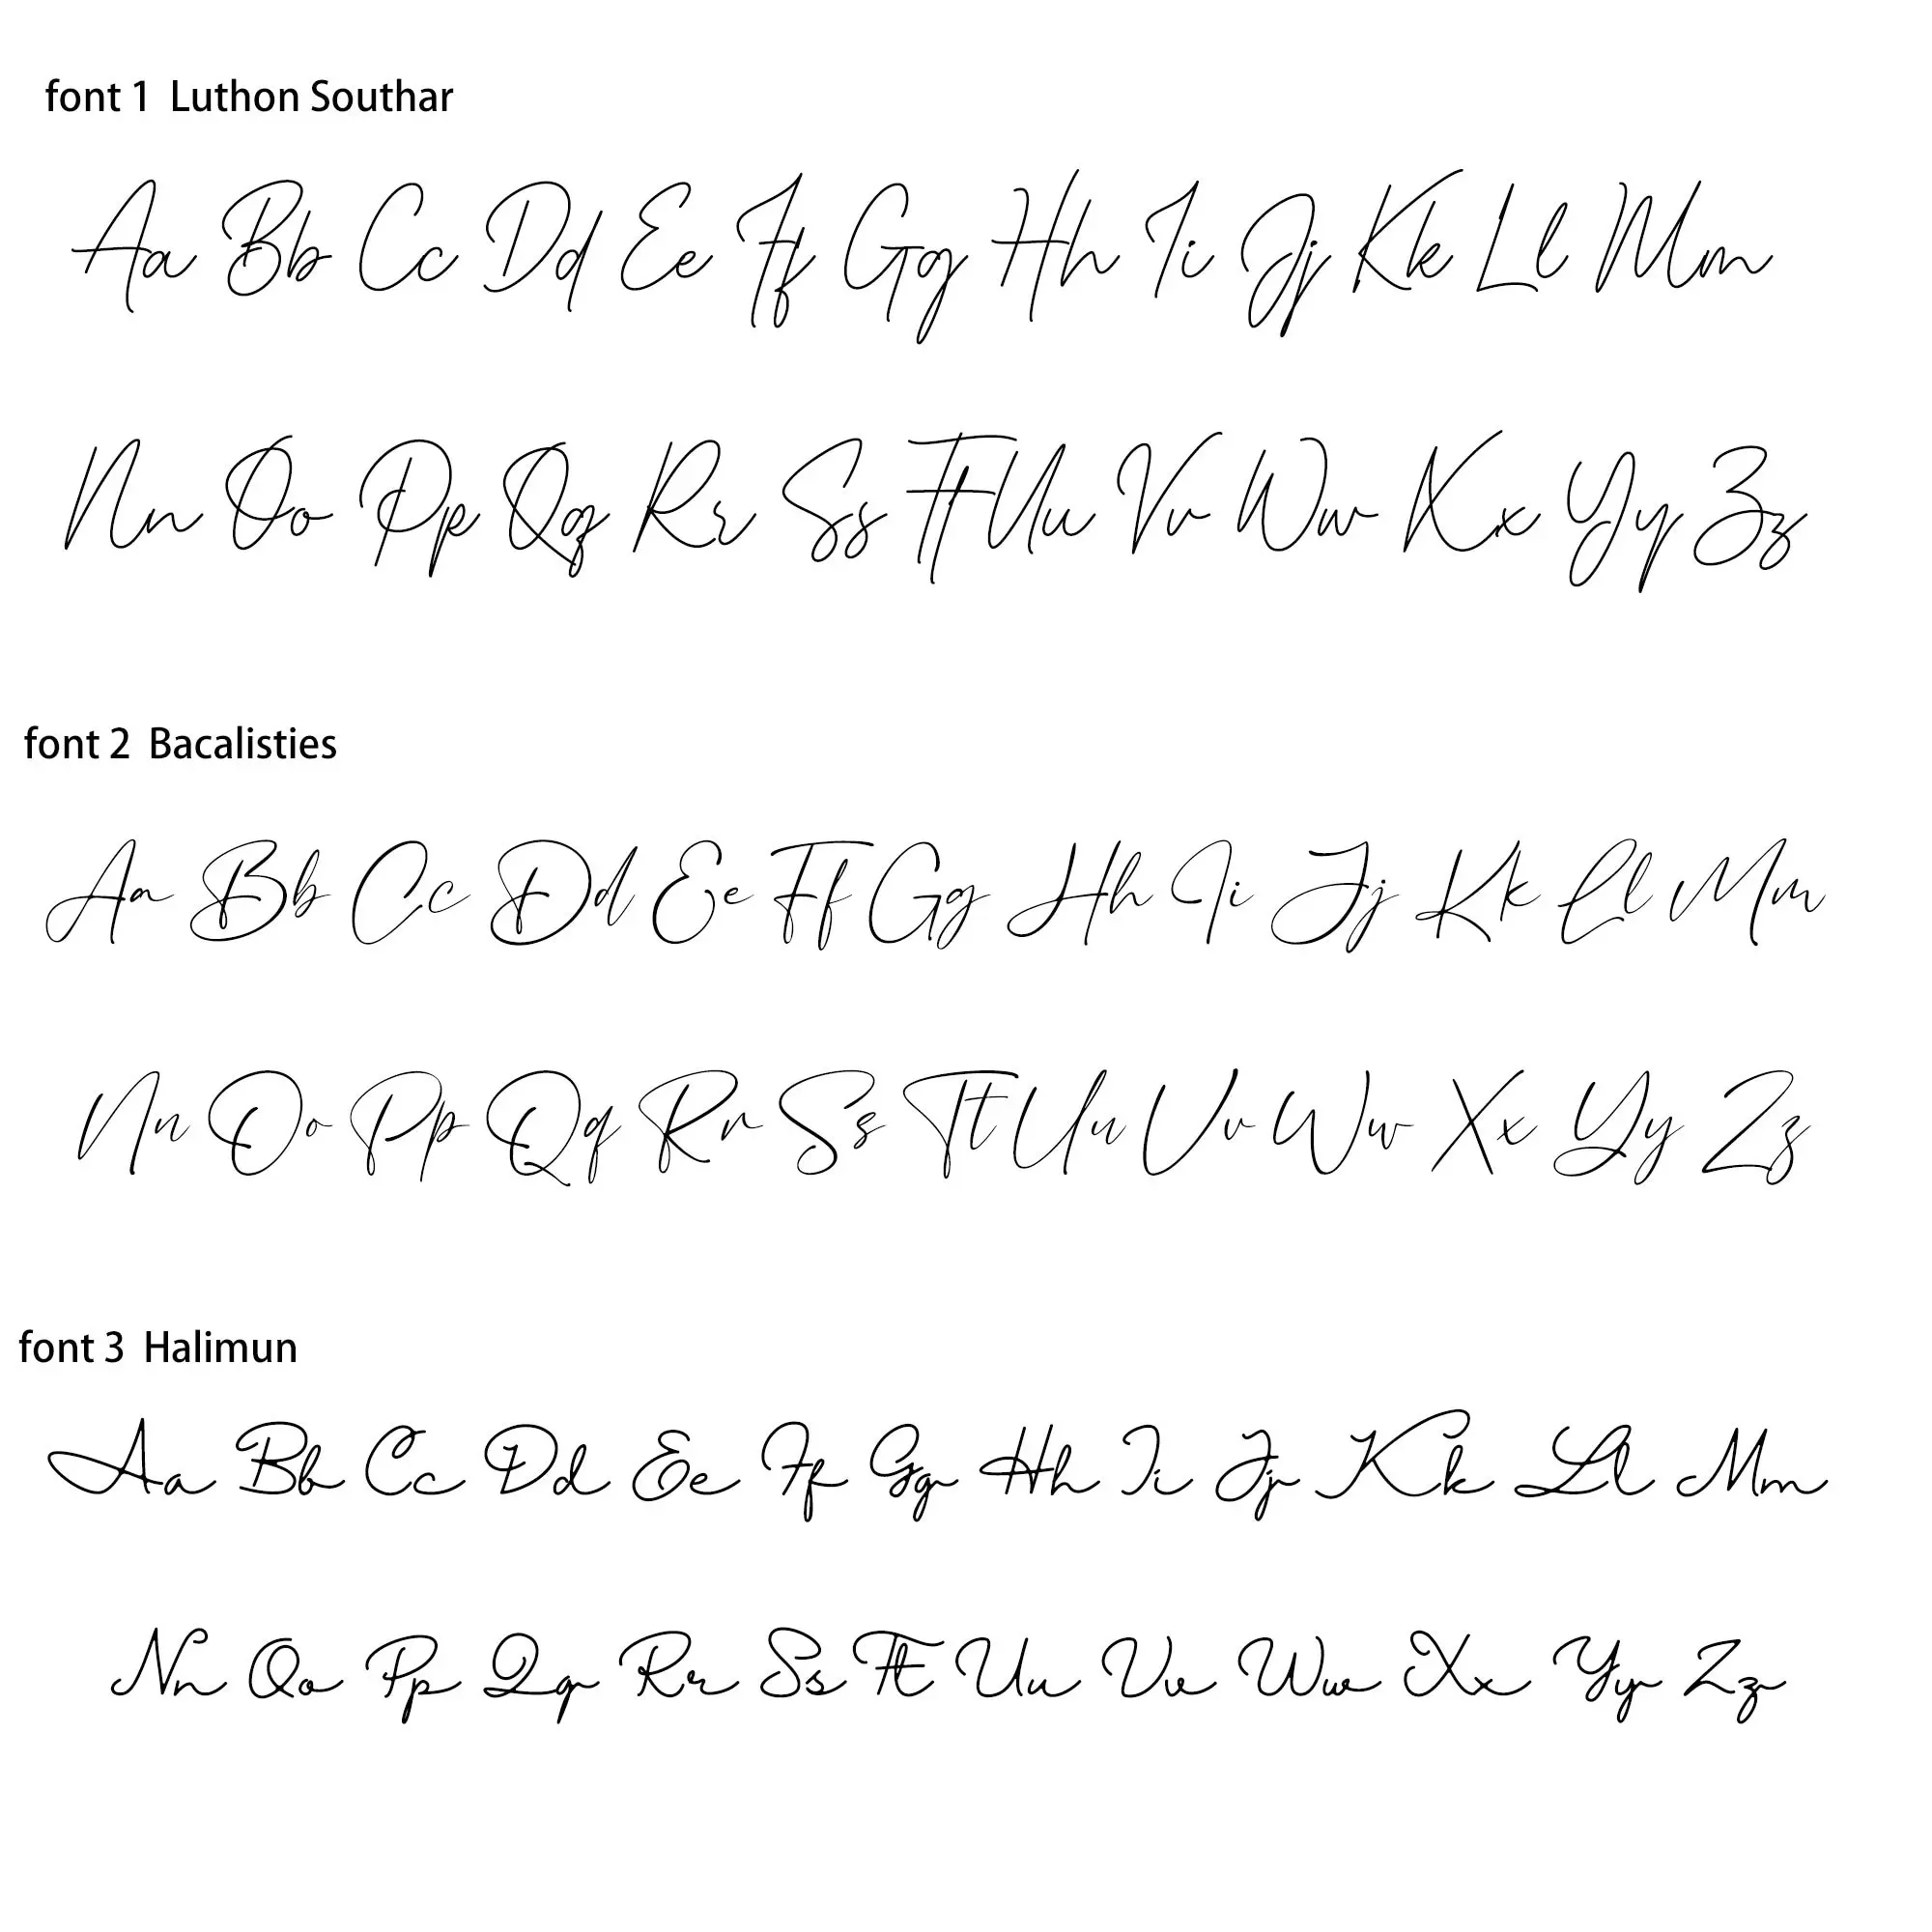 font 1 Luthon Southar
Aa Bb Cc Dd Ee Ff Gg Hh Ii Jj Kk Ll Mm
Nn Oo Pp Qq Rr Ss Tt Uu Vv Ww Xx Yy Zz
font 2 Bacalisties
Aa Bb Cc Dd Ee Ff Gg Hh Ii Jj Kk Ll Mm
Nn Oo Pp Qq Rr Ss Tt Uu Vv Ww Xx Yy Zz
font 3 Halimun
Aa Bb Cc Dd Ee Ff Gg Hh Ii Jj Kk Ll Mm
Nn Oo Pp Qq Rr Ss Tt Uu Vv Ww Xx Yy Zz